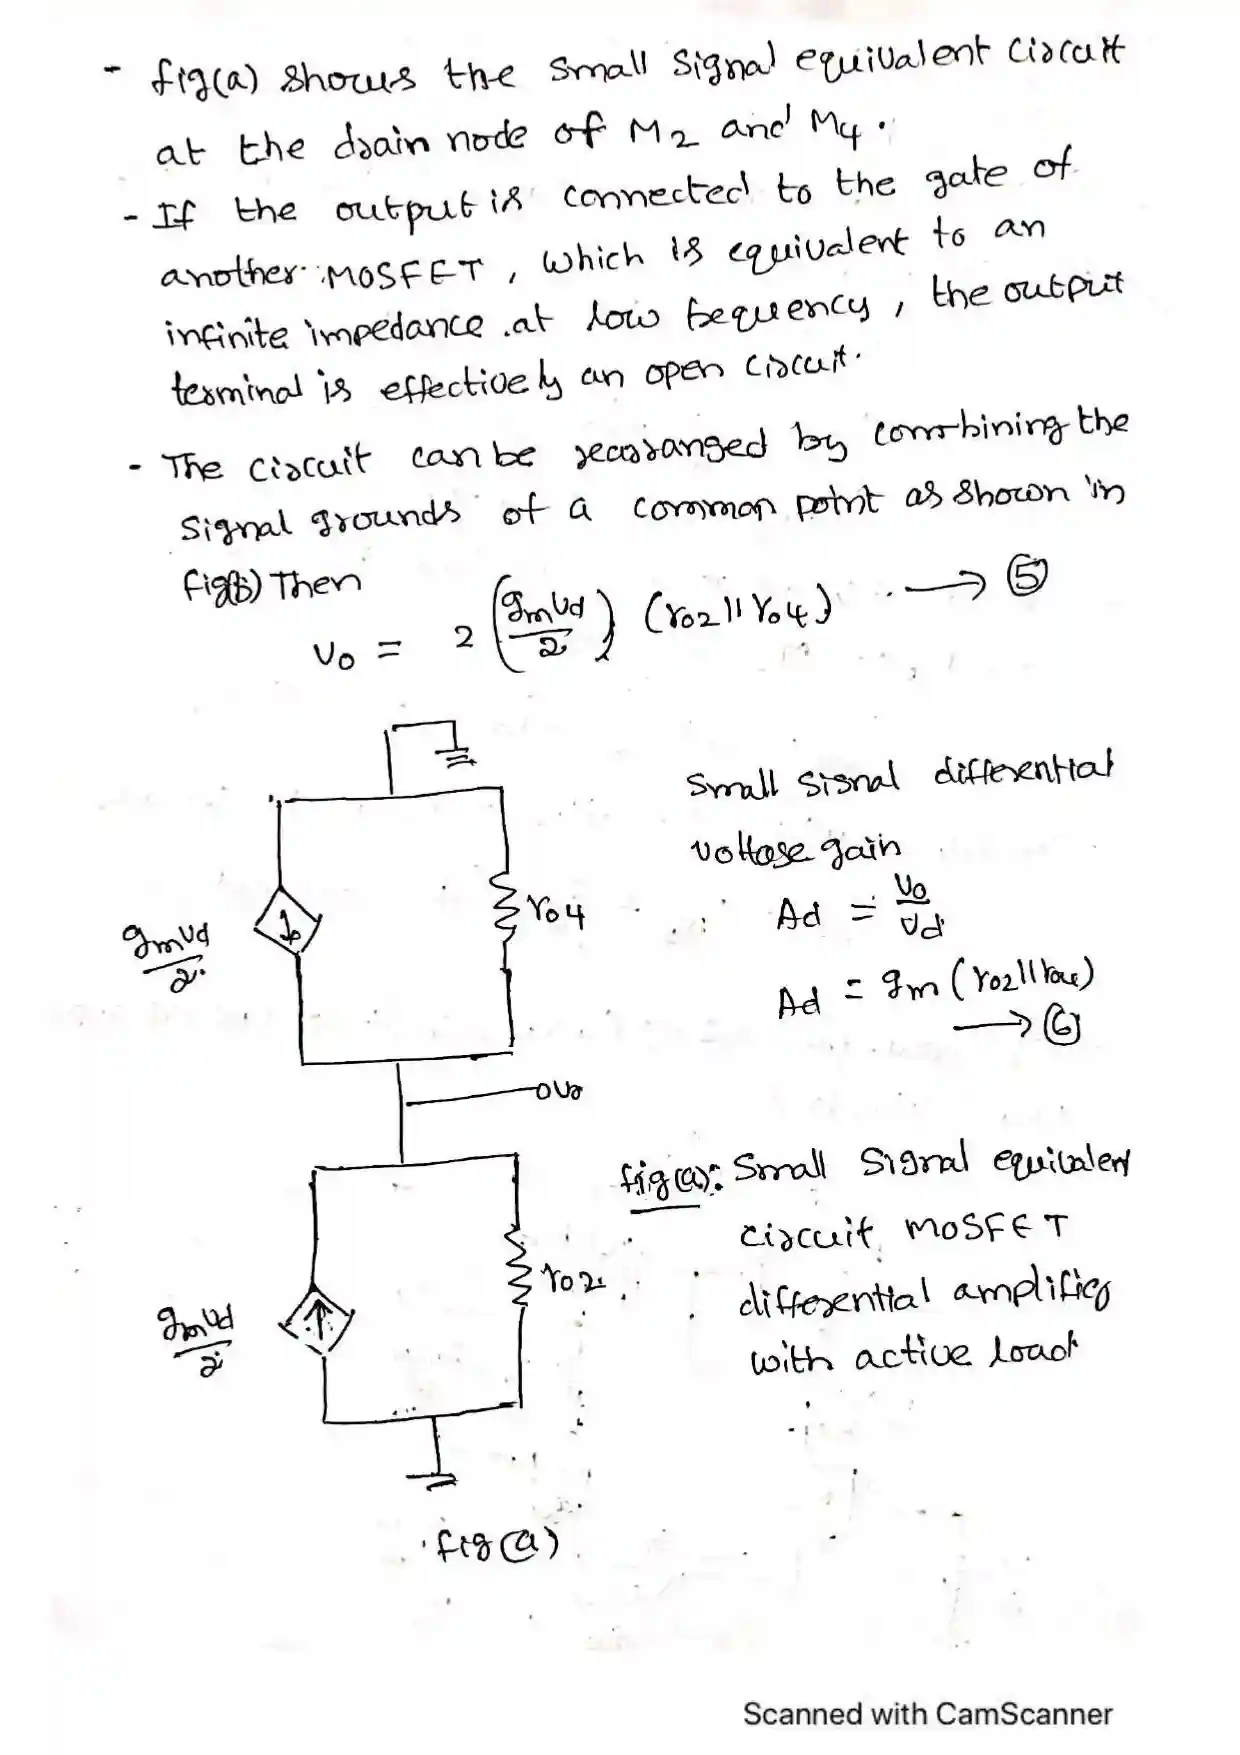 - fig(a) shows the small signal equivalent circuit
at the drain node of M2 and M4.
- If the output is connected to the gate of
another MOSFET, which is equivalent to an
infinite impedance at low fequency, the output
terminal is effectively an open circuit.
- The circuit can be rearranged by combining the
signal grounds of a common point as shown in
fig(b) Then
vo = 2 (gmvd/2) (ro2 || ro4) → 5
small signal differential
voltage gain
Ad = vo/vd
Ad = gm (ro2 || ro4)
→ 6
ro4
gmvd/2
vo
fig(a): Small signal equivalent
circuit MOSFET
differential amplifier
with active load
ro2
gmvd/2
fig(a)
Scanned with CamScanner